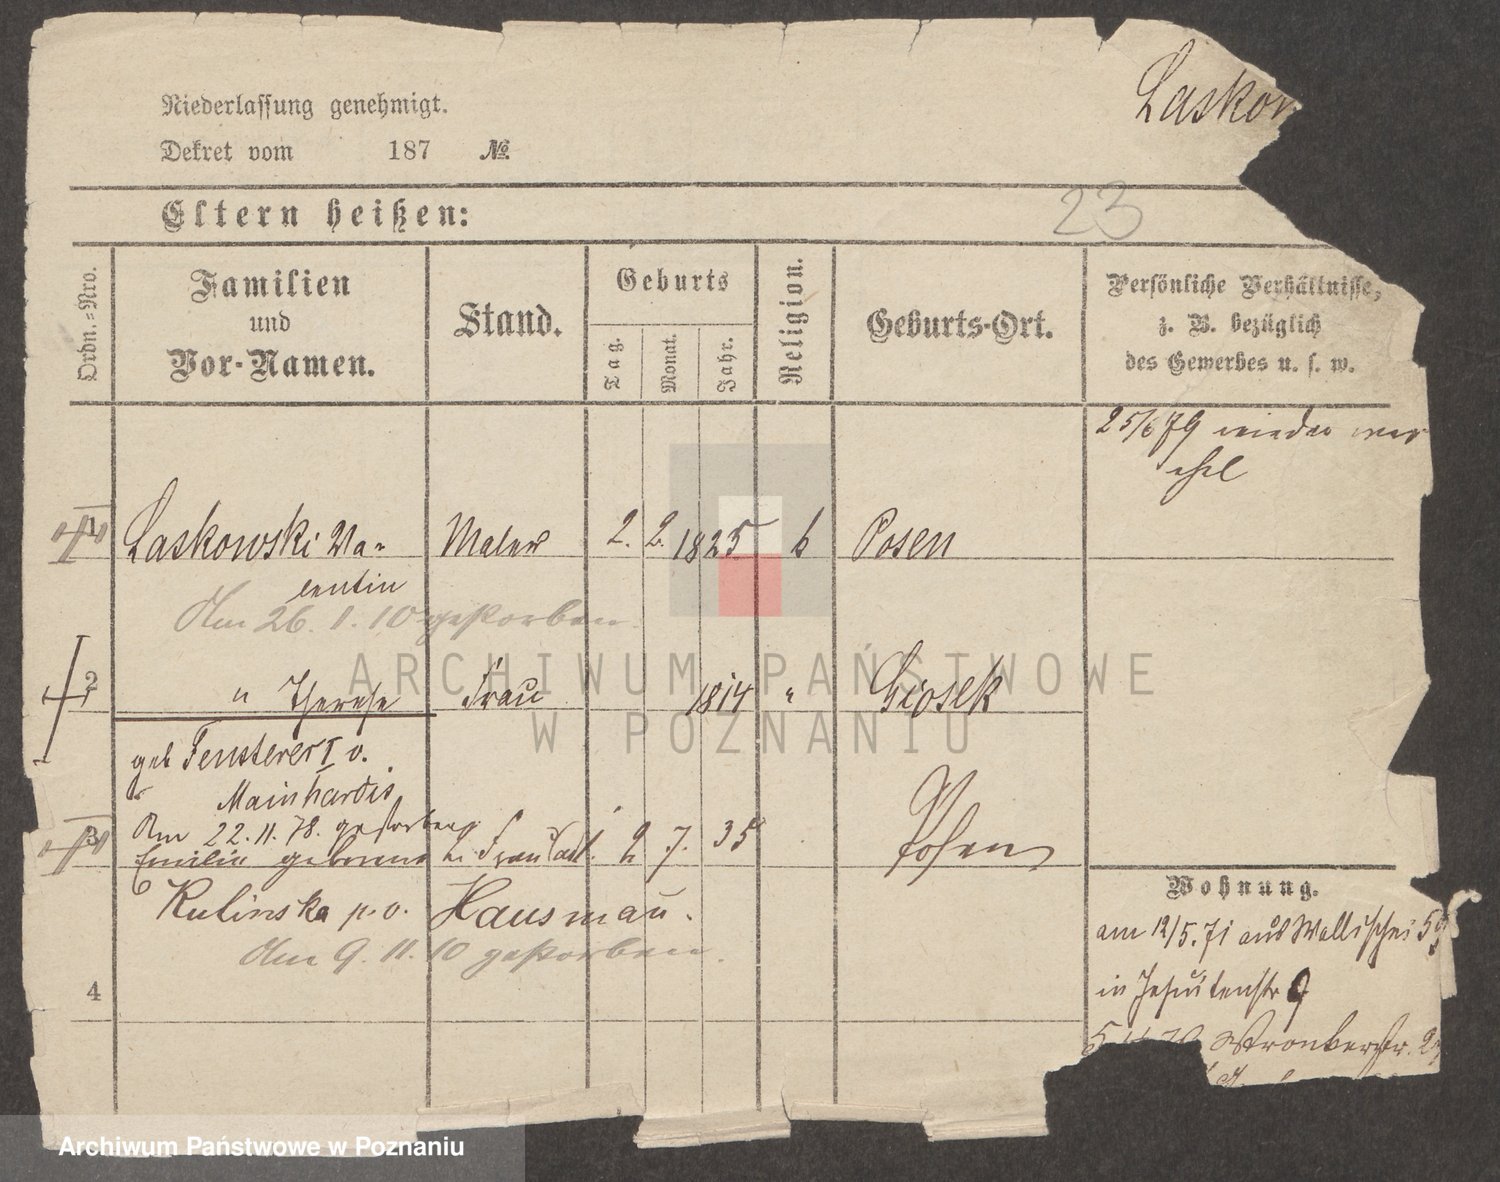 Laskow
Niederlassung genehmigt.
Dekret vom 187 №
Eltern heißen:
23
Ordn.-Nro.
Familien
und
Vor-Namen.
Stand.
Geburts
Tag.
Monat.
Jahr.
Religion.
Geburts-Ort.
Persönliche Verhältnisse,
z. B. bezüglich
des Gewerbes u. s. w.
25/6 79 wieder ver
ehel
1 Laskowski Va- Maler 2. 2. 1825 k Posen
lentin
Am 26. 1. 10 gestorben.
2 " Therese Frau 1814 " Giosek
geb Fensterer I v.
Mainhardis
Am 22. 11. 78. gestorben
3 Emilie geborene 2. 7. 35 Posen
Kulinska p. v. Hausmann.
Am 9. 11. 10 gestorben.
4
Wohnung.
am 12/5. 71 aus Wallischei 59
in Jesuitenstr 9
Wronkerstr.
ARCHIWUM PAŃSTWOWE
W POZNANIU
Archiwum Państwowe w Poznaniu